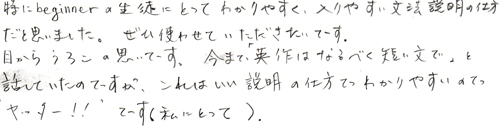 特にbeginnerの生徒にとってわかりやすく、入りやすい文法説明の仕方
だと思いました。 ぜひ使わせていただきたいです。
目からうろこの思いです。 今まで「英作はなるべく短い文で」と
話していたのですが、これはいい説明の仕方でわかりやすいので
"ヤッター!!" です(私にとって)。